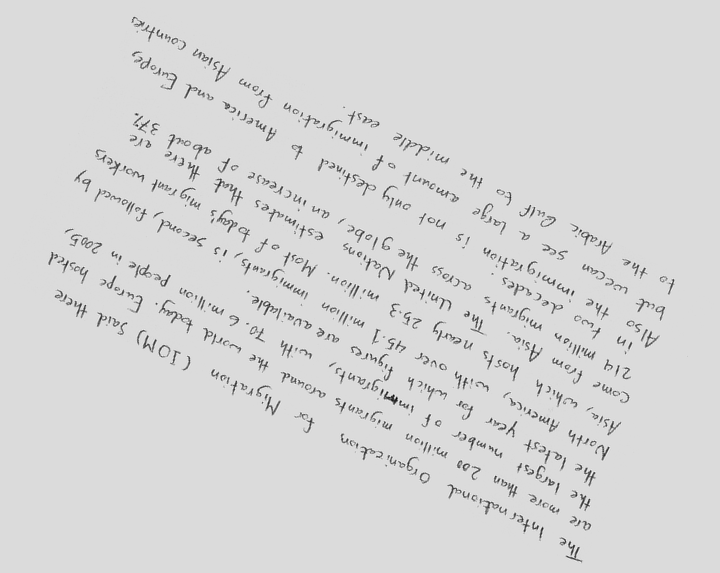 The International Organization for Migration (IOM) said there
are more than 200 million migrants around the world today. Europe hosted
the largest number of immigrants, with 70.6 million people in 2005,
the latest year for which figures are available.
North America, with over 45.1 million immigrants, is second, followed by
Asia, which hosts nearly 25.3 million. Most of today's migrant workers
come from Asia. The United Nations estimates that there are
214 million migrants across the globe, an increase of about 37%
in two decades.
Also the immigration is not only destined to America and Europe,
but we can see a large amount of immigration from Asian countries
to the Arabic Gulf to the middle east.